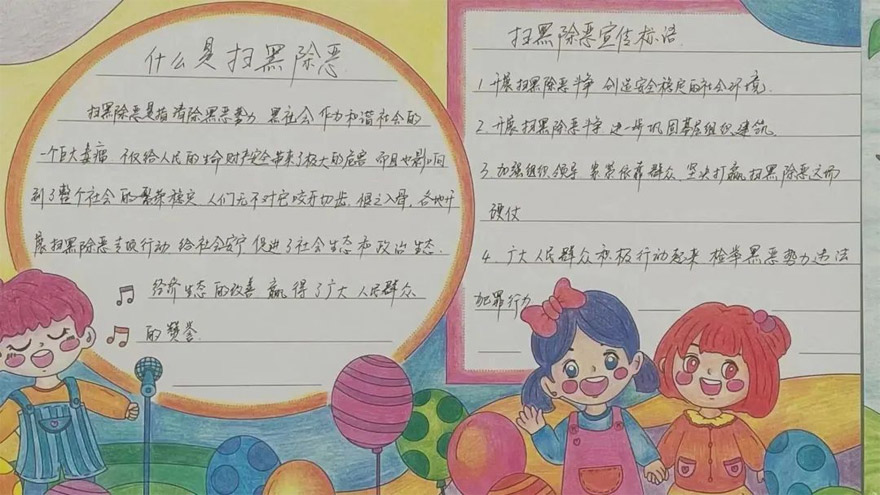 什么是扫黑除恶
扫黑除恶是指清除黑恶势力 黑社会 作为和谐社会的
一个巨大毒瘤 不仅给人民的生命财产安全带来了极大的危害 而且也影响
到了整个社会的繁荣稳定 人们无不对它咬牙切齿 恨之入骨. 各地开
展扫黑除恶专项行动 给社会安宁 促进了社会生态和政治生态.
经济生态的改善 赢得了广大人民群众
的赞誉.
扫黑除恶宣传标语.
1 开展扫黑除恶斗争 创造安全稳定的社会环境.
2. 开展扫黑除恶斗争 进一步巩固基层组织建筑.
3. 加强组织领导 紧紧依靠群众 坚决打赢扫黑除恶这场
硬仗
4. 广大人民群众积极行动起来 检举黑恶势力违法
犯罪行为